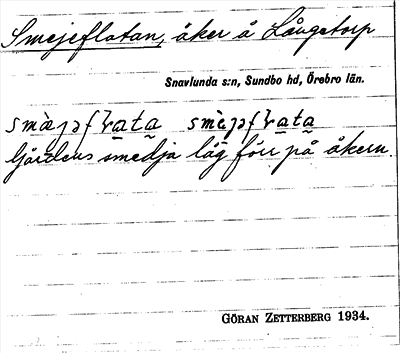 Smejeflatan, åker å Långetorp
Snavlunda s:n, Sundbo hd, Örebro län.
Gårdens smedja låg förr på åkern.
GÖRAN ZETTERBERG 1934.